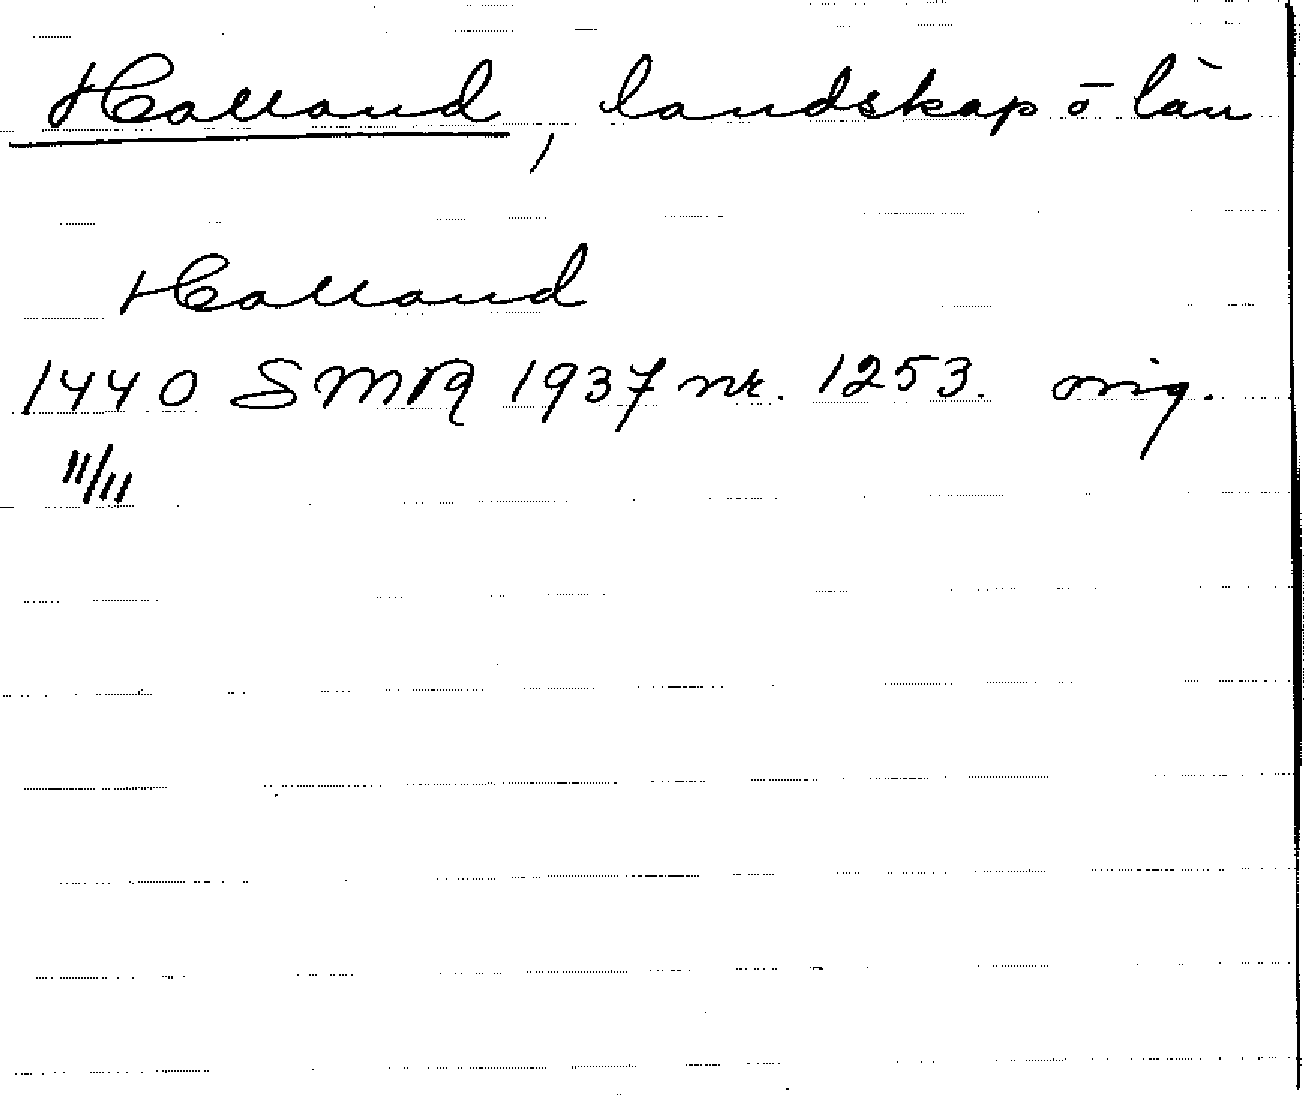 Halland, landskap o län
Halland
1440 SMR 1937 nr. 1253. orig.
11/11